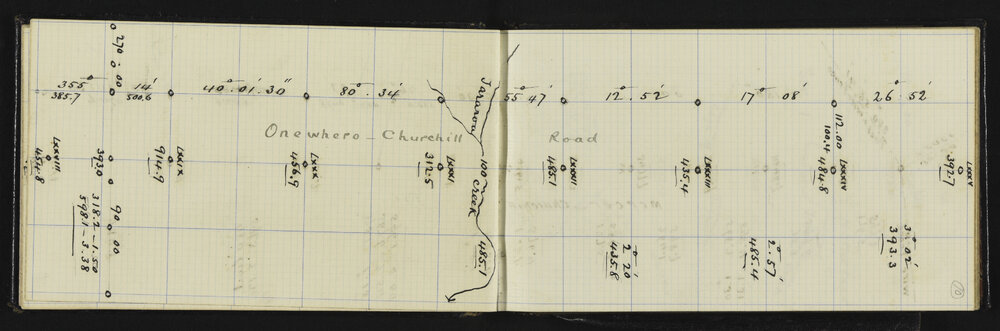 270° 00
355° 14'
385.7 500.6
40°. 01'. 30"
80°. 34'
55° 47'
12°. 52'
17° 08'
26°. 52'
112.00
100.4
Onewhero - Churchill Road
creek
100
LXXVIII
454.8
393.0
LXXIX
914.9
LXXX
456.9
LXXXI
312.5
LXXXII
485.1
LXXXIII
435.4
LXXXIV
484.8
LXXXV
392.7
90 00
318.2 - 1.50
598.1 - 3.38
485.1
2° 20'
435.8
2°. 57'
485.4
3° 02'
393.3
10